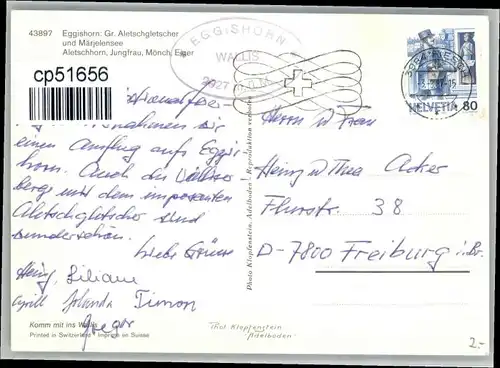 43897 Eggishorn: Gr. Aletschgletscher
und Märjelensee
Aletschhorn, Jungfrau, Mönch, Eiger
cp51656
EGGISHORN
WALLIS
2927 m ü. M.
HELVETIA 80
unternahmen wir
einen Ausflug aufs Eggis-
horn. Auch die Walliser
berge mit dem imposanten
Aletschgletscher sind
wunderschön.
Liebe Grüsse
Heinz, Liliane
Cyrill Jolanda Timon
Gregor
Komm mit ins Wallis
Printed in Switzerland - Imprimé en Suisse
Photo Klopfenstein, Adelboden / Reproduktion verboten
Herrn u Frau
Heinz u Thea Acker
Fluhrstr. 38
D-7800 Freiburg i. Br.
Phot Klopfenstein
Adelboden
2.-